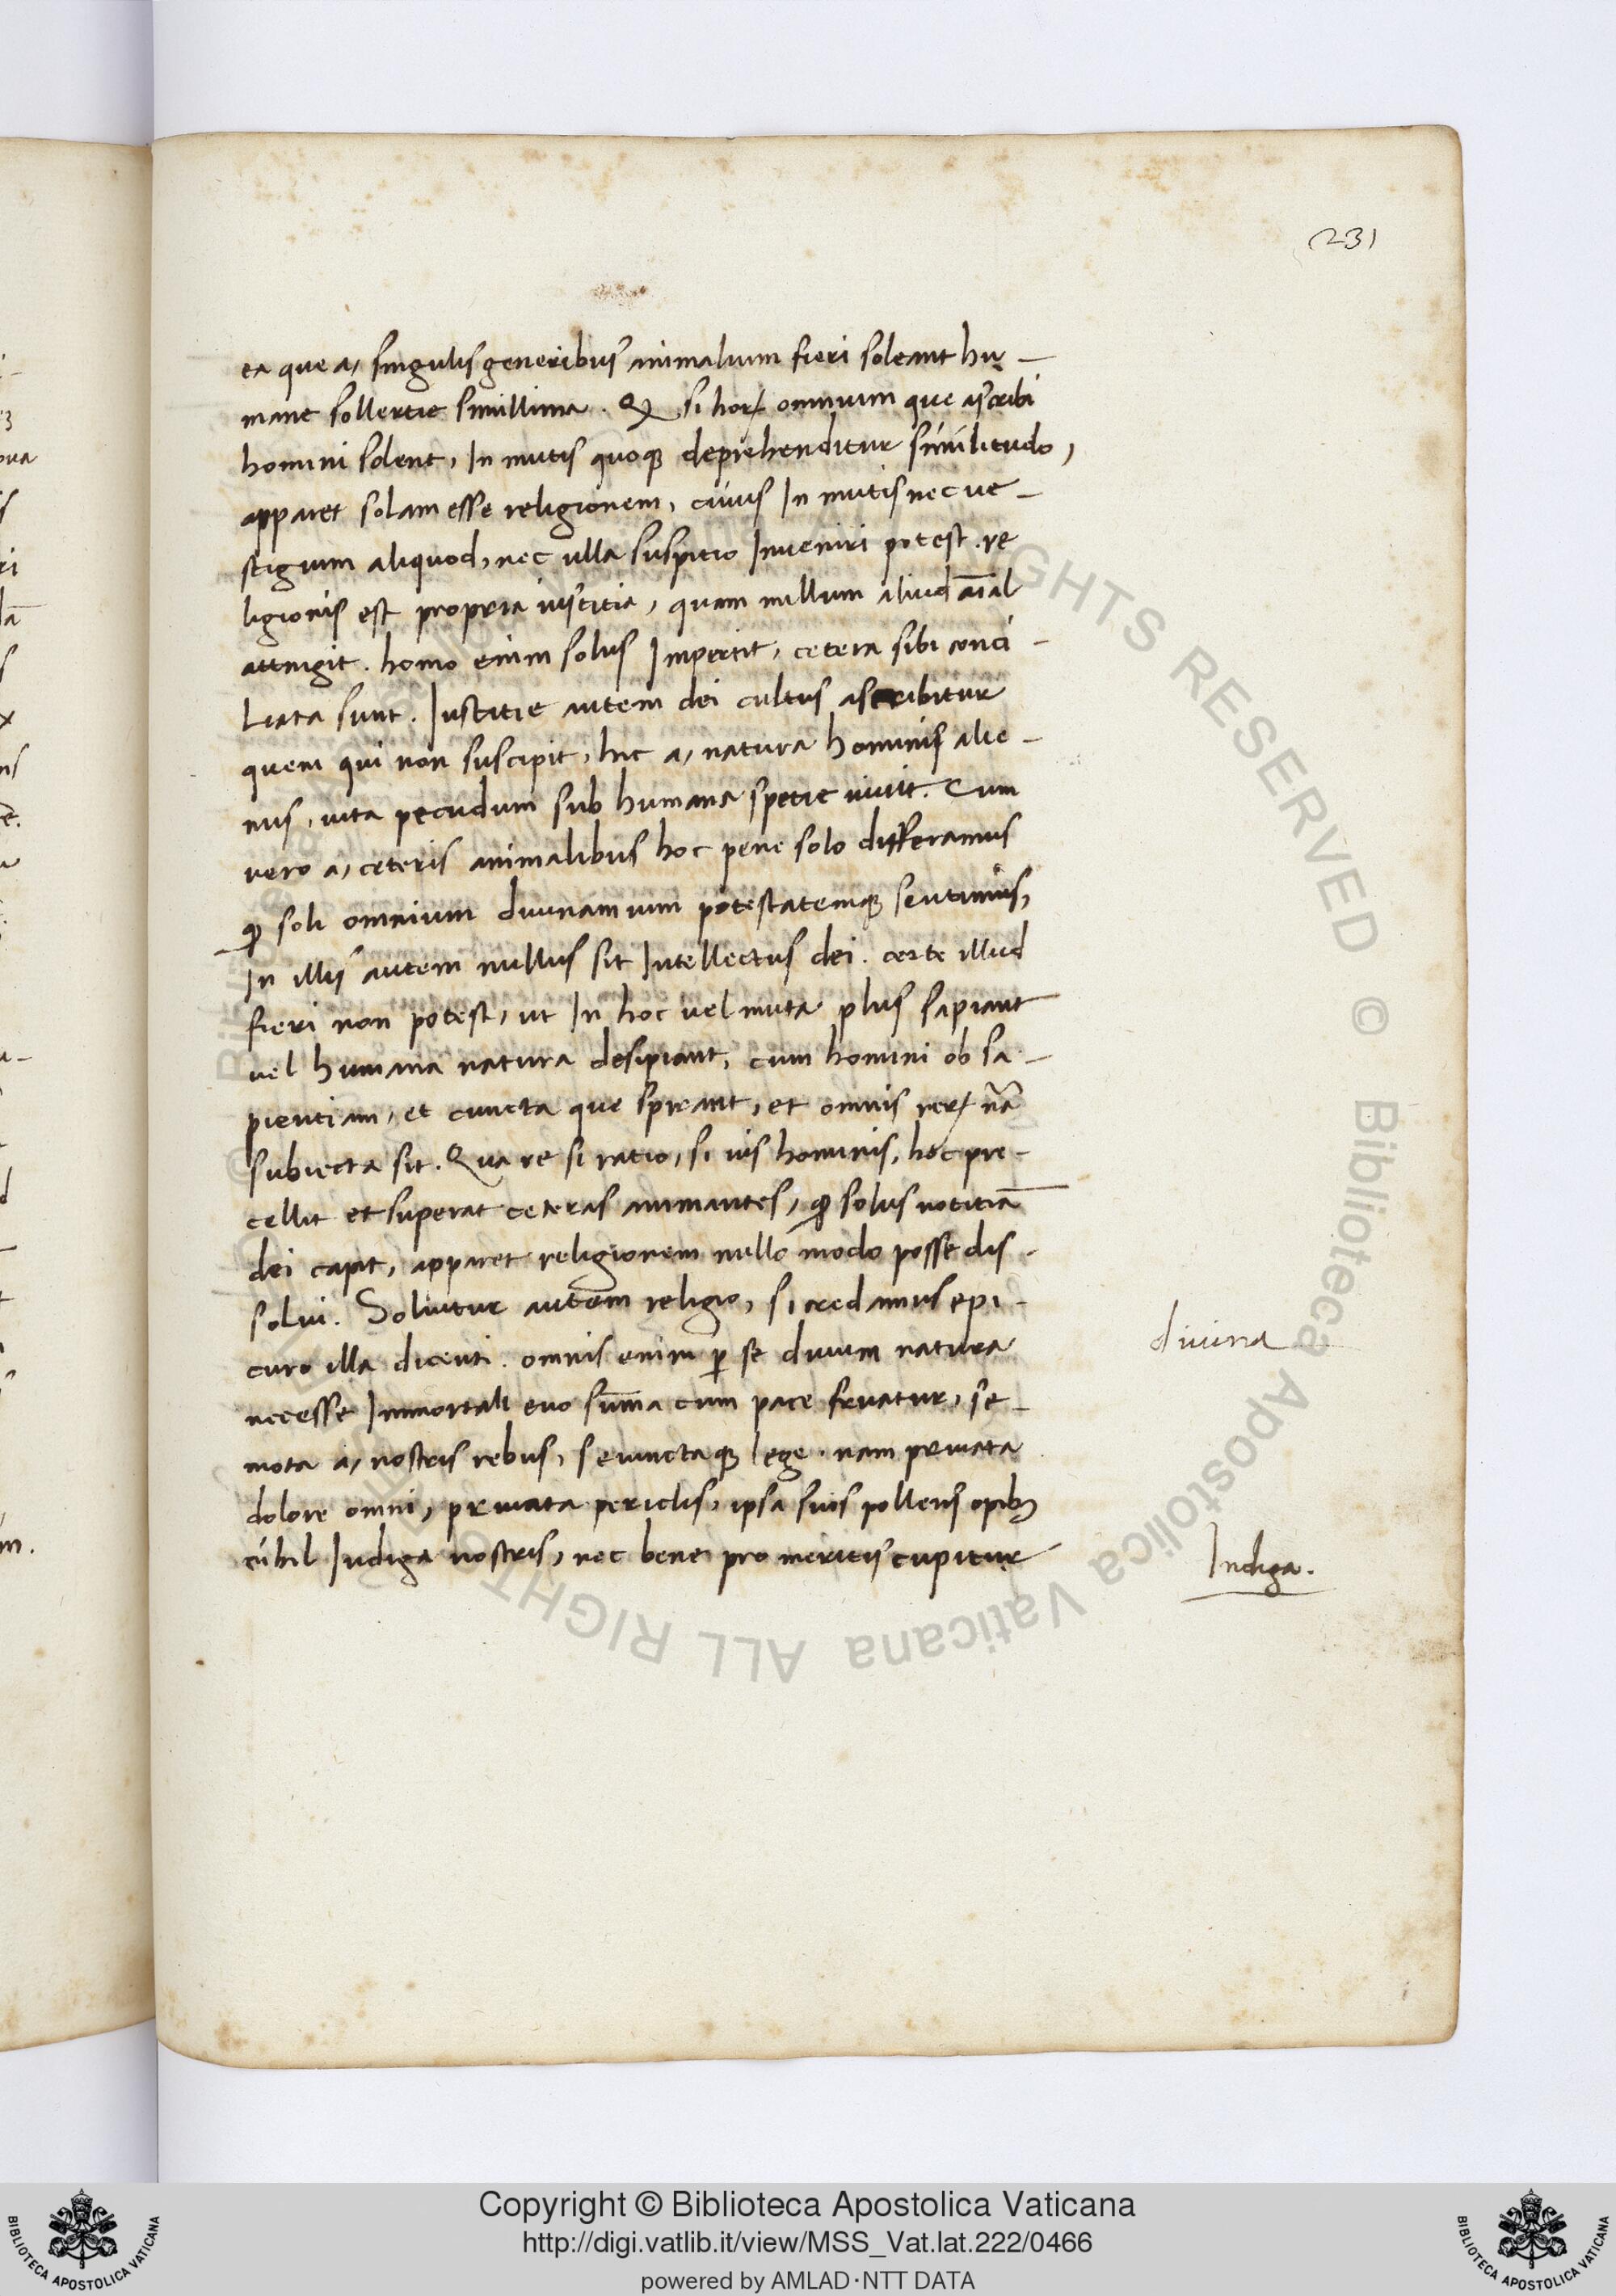 231
ea que a, singulis generibus animalium fieri soleant hu_
mane sollertie simillima. Qđ si hoꝝ omnium que ascribi
homini solent, In mutis quoqꝫ deprehenditur similitudo,
apparet solam esse religionem, cuius In mutis nec ue_
stigium aliquod, nec ulla suspitio Inueniri potest. re
ligionis est propria iustitia, quam nullum aliud aĩal
attingit. homo enim solus Impertit, cetera sibi conci_
liata sunt. Iustitie autem dei cultus ascribitur
quem qui non suscipit, hic a, natura hominis alie_
nus, uita pecudum sub humana spetie uiuit. Cum
uero a, ceteris animalibus hoc pene solo differamus
ꝙ soli omnium diuinam uim potestatemqꝫ sentimus,
In illis autem nullus sit Intellectus dei. certe illud
fieri non potest, ut In hoc uel muta plus sapiant
uel humana natura desipiant, cum homini ob sa_
pientiam, et cuncta que spirant, et omnis reꝝ nã
subiecta sit. Qua re si ratio, si uis hominis, hoc pre_
cellit et superat ceteras animantes, ꝙ solus notitiã
dei capit, apparet religionem nullo modo posse dis_
solui. Soluitur autem religio, si credamus epi_
curo illa dicenti. omnis enim ꝑ se diuum natura
necesse Immortali euo sum̃a cum pace fruatur, se_
mota a, nostris rebus, seiunctaqꝫ lege. nam priuata
dolore omni, priuata periclis, ipsa suis pollens opibꝫ
nihil Indiga nostris, nec bene pro meritis cupitur
diuina
Indiga.
© Biblioteca Apostolica Vaticana ALL RIGHTS RESERVED
Copyright © Biblioteca Apostolica Vaticana
http://digi.vatlib.it/view/MSS_Vat.lat.222/0466
powered by AMLAD·NTT DATA
BIBLIOTECA APOSTOLICA VATICANA
BIBLIOTECA APOSTOLICA VATICANA